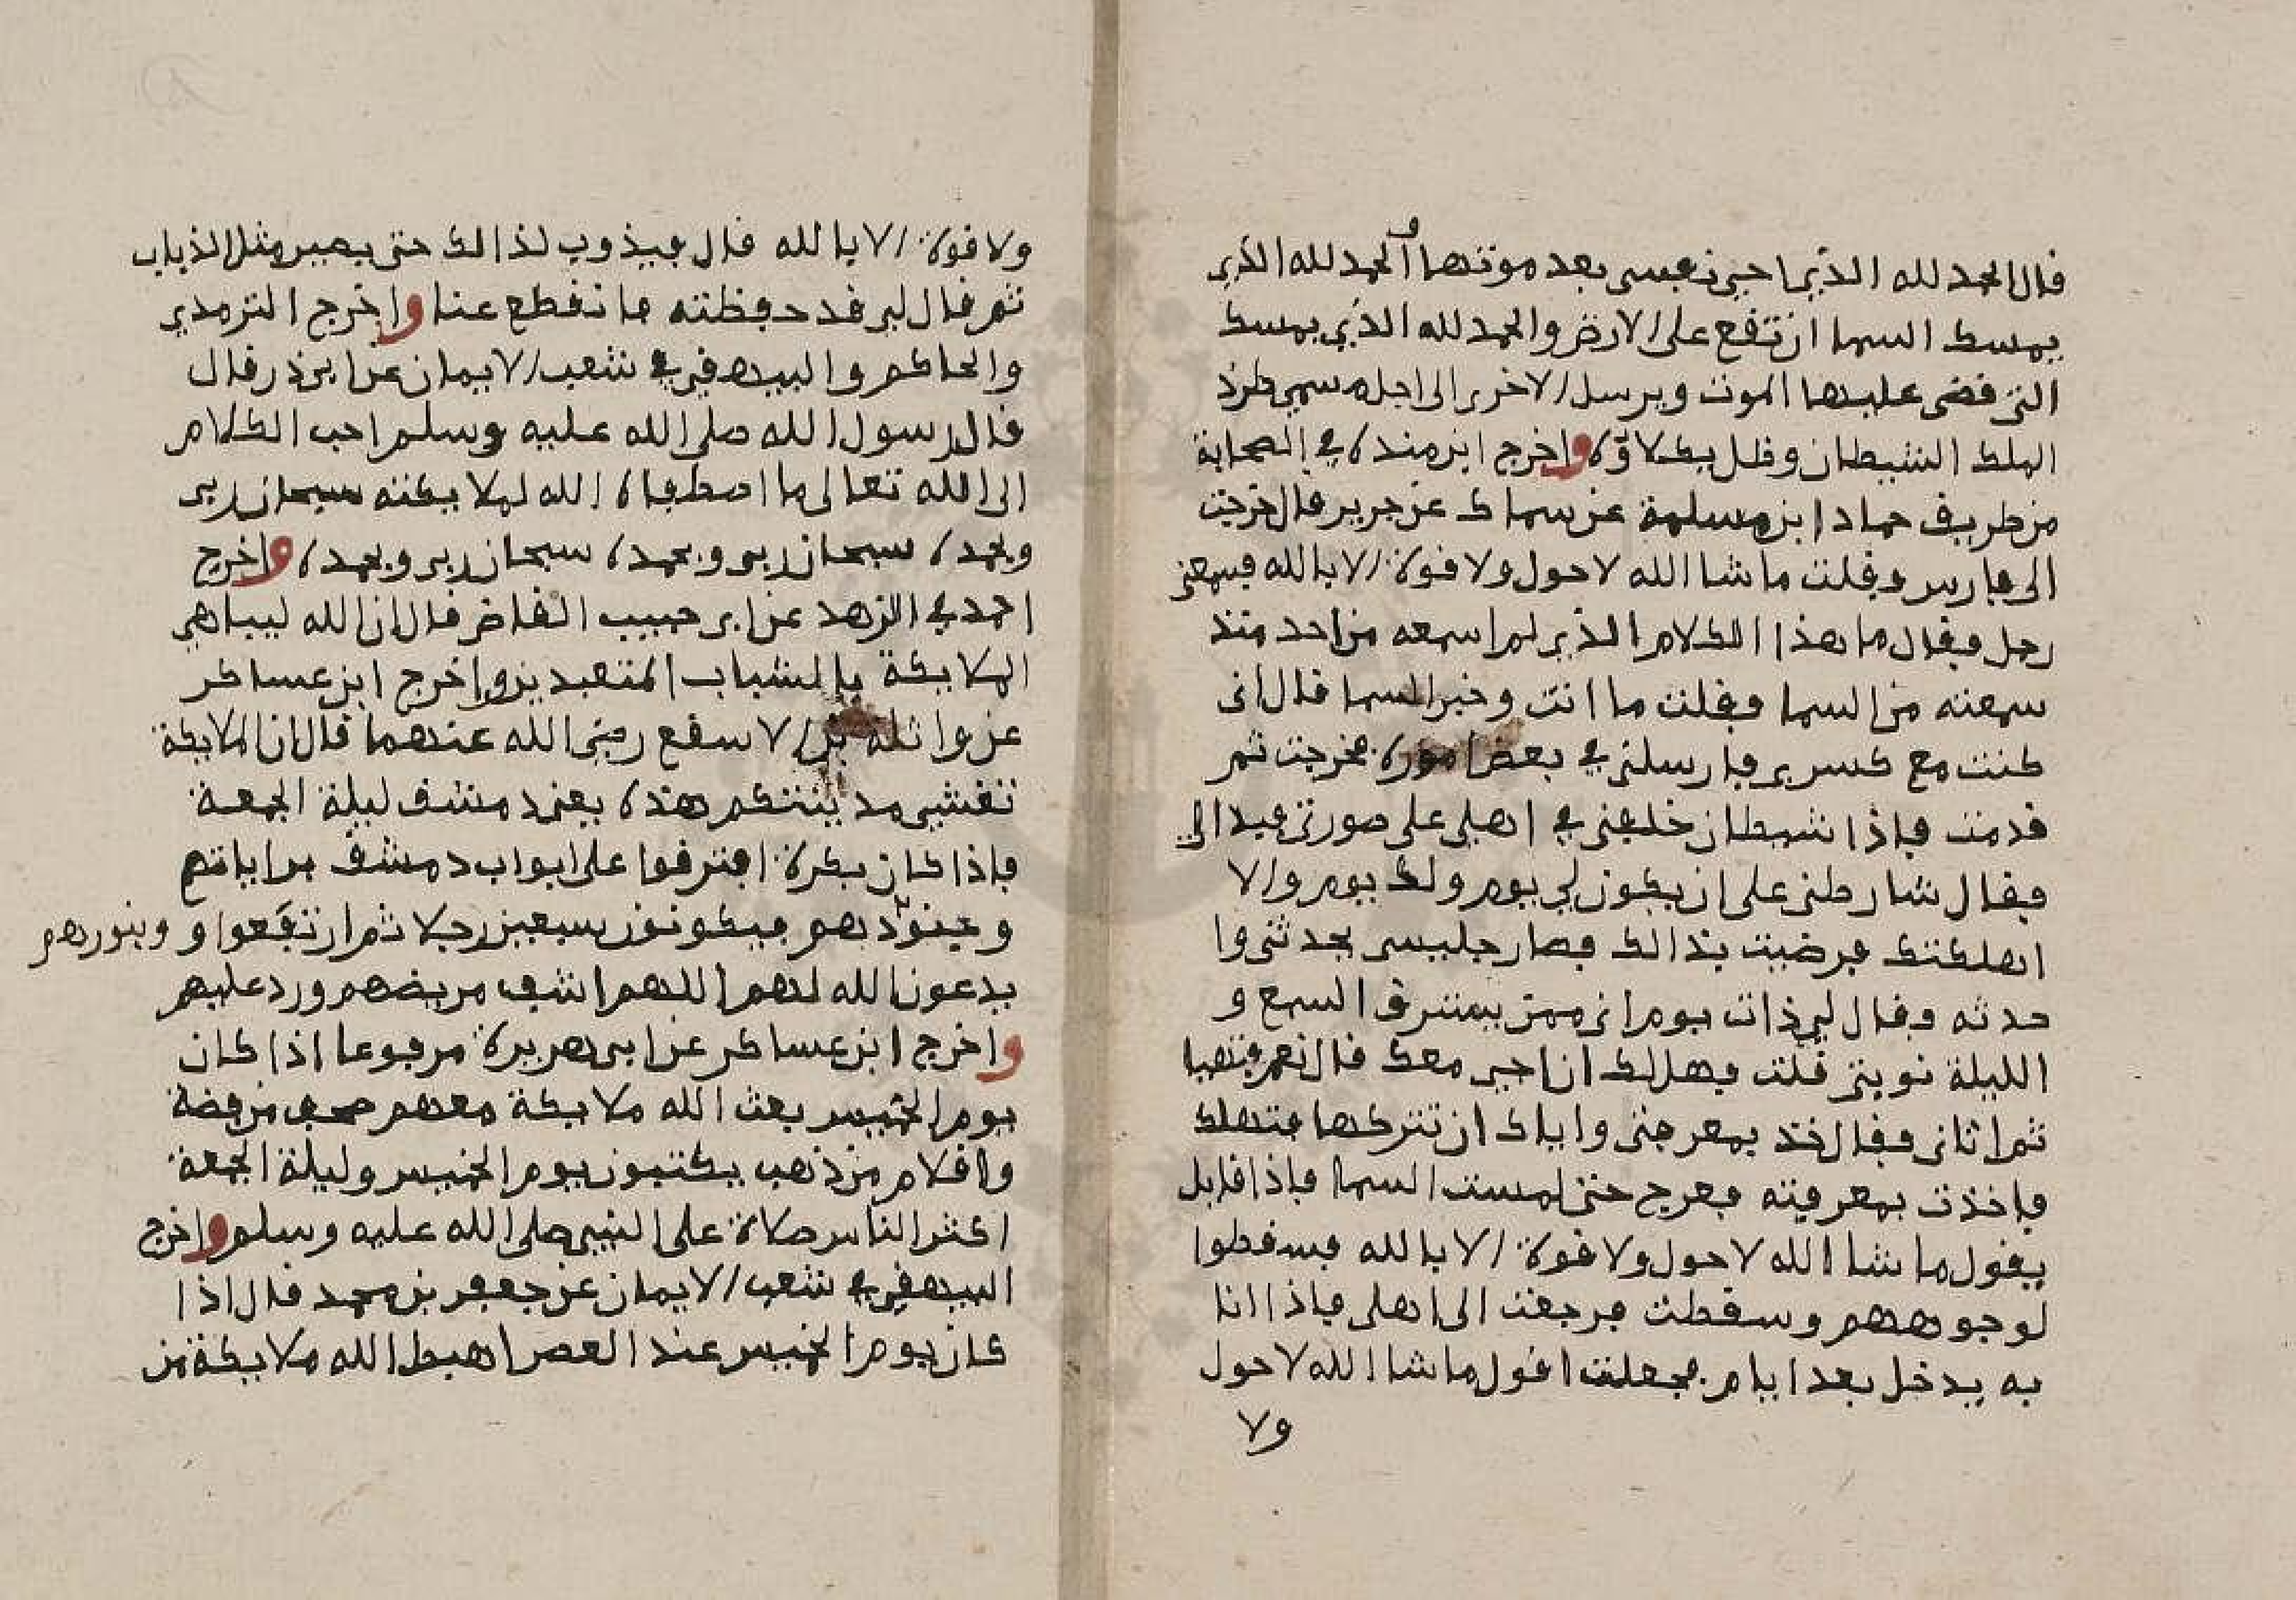 قال الحمد لله الذي احيى نفسى بعد موتها و الحمد لله الذي
يمسك السما ان تقع على الارض والحمد لله الذي يمسك
التي قضى عليها الموت ويرسل الاخرى الى اجل مسمى طرد
الملك الشيطان وظل يكلاؤه واخرج ابن منده في الصحابة
من طريق حماد ابن مسلمة عن سماك عن جرير قال خرجت
الى فارس فقلت ما شا الله لا حول ولا قوة الا بالله فسمعني
رجل فقال ما هذا الكلام الذي لم اسمعه من احد منذ
سمعته من السما فقلت ما انت وخبر السما قال انى
كنت مع كسرى فارسلني في بعض اموره فخرجت ثم
قدمت فاذا شيطان خلفني في اهلي على صورتي فبدا الي
فقال شارطني على ان يكون لي يوم ولك يوم والا
اهلكتك فرضيت بذالك فصار جليسى يحدثني وا
حدثه فقال لي ذات يوم اني ممن يسترق السمع و
الليلة نوبتي قلت فهل لك ان اجى معك قال نعم فتهيا
ثم اتاني فقال خذ بمعرفتي واياك ان تتركها فتهلك
فاخذت بمعرفته فعرج حتى لمست السما فاذا قايل
يقول ما شا الله لا حول ولا قوة الا بالله فسقطوا
لوجوههم وسقطت فرجعت الى اهلي فاذا انا
به يدخل بعد ايام فجعلت اقول ما شا الله لا حول
ولا
ولا قوة الا بالله قال فيذوب لذالك حتى يصير مثل الذباب
ثم قال لي قد حفظته فانقطع عنا واخرج الترمذي
والحاكم والبيهقي في شعب الايمان عن ابي ذر قال
قال رسول الله صلى الله عليه وسلم احب الكلام
الى الله تعالى ما اصطفاه الله لملايكته سبحان ربي
وبحمده سبحان ربي وبحمده سبحان ربي وبحمده واخرج
احمد في الزهد عن ابي حبيب القاضي قال ان الله ليباهي
الملايكة بالشباب المتعبدين واخرج ابن عساكر
عن واثلة بن الاسقع رضي الله عنهما قال ان الملايكة
تغشى مدينتكم هذه يعني دمشق ليلة الجمعة
فاذا كان بكرة افترقوا على ابواب دمشق براياتهم
وبنودهم فيكونون سبعين رجلا ثم ارتفعوا و وبنورهم
يدعون الله لهم اللهم اشف مريضهم ورد عليهم
واخرج ابن عساكر عن ابي هريرة مرفوعا اذا كان
يوم الخميس بعث الله ملايكة معهم صحف من فضة
واقلام من ذهب يكتبون يوم الخميس وليلة الجمعة
اكثر الناس صلاة على النبي صلى الله عليه وسلم واخرج
البيهقي في شعب الايمان عن جعفر بن محمد قال اذا
كان يوم الخميس عند العصر اهبط الله ملايكة من